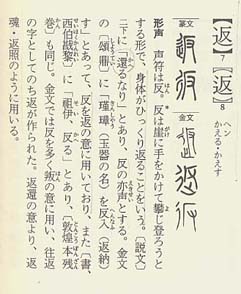 【返】7〖返〗8
ヘン
かえる・かえす
篆文
金文
形声 声符は反。反は崖に手をかけて攀じ登ろうと
する形で、身体がひっくり返ることをいう。〔説文〕
二下に「還るなり」とあり、反の亦声とする。金文
の〔頌鼎〕に「瑾璋(玉器の名)を反入(返納)
す」とあって、反を返の意に用いており、また〔書、
西伯戡黎〕に「祖伊、反る」とあり、〔敦煌本残
巻〕も同じ。金文では反を多く叛の意に用い、往返
の字としてのち返が作られた。返還の意より、返
魂・返照のように用いる。